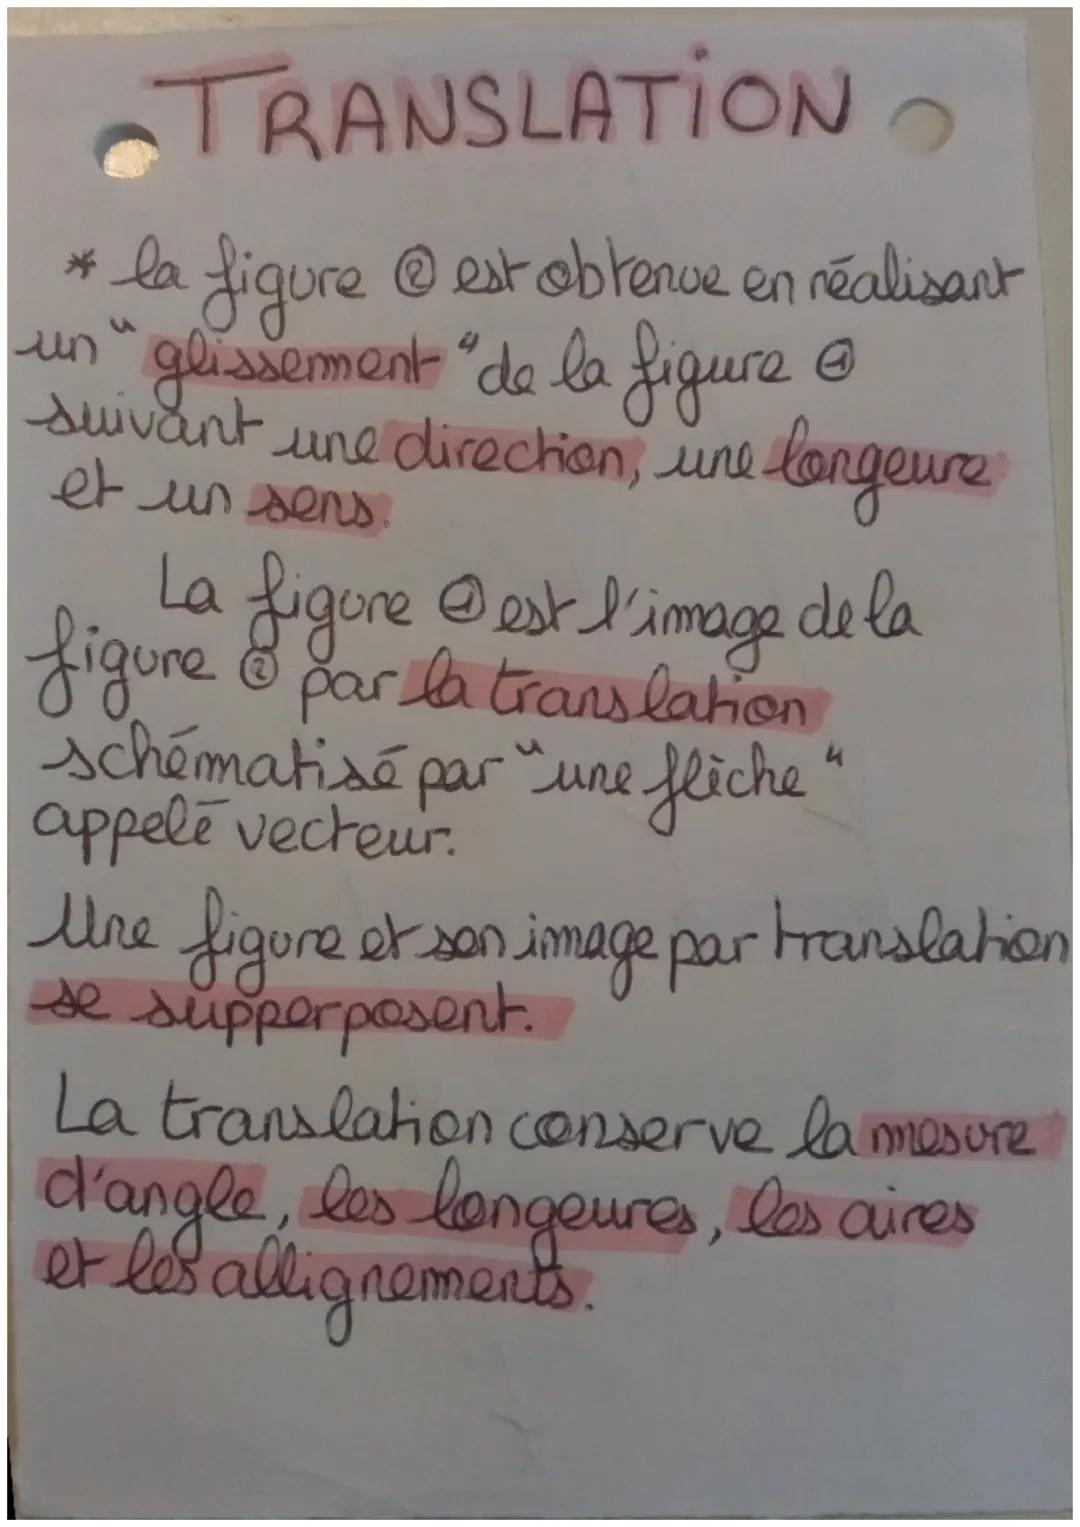 TRANSLATION
* la figure ② est obtenue en réalisant
un "glissement" de la figure ①
suivant une direction, une longeure
et un sens.
La figure ① est l'image de la
figure ② par la translation
schématisé par "une flèche"
appelé vecteur.
Une figure et son image par translation
se supperposent.
La translation conserve la mesure
d'angle, les longeures, les aires
et les allignements.